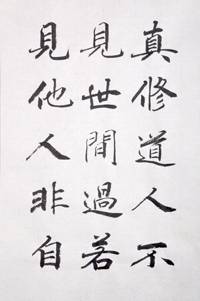 真修道人不
見世間過若
見他人非自